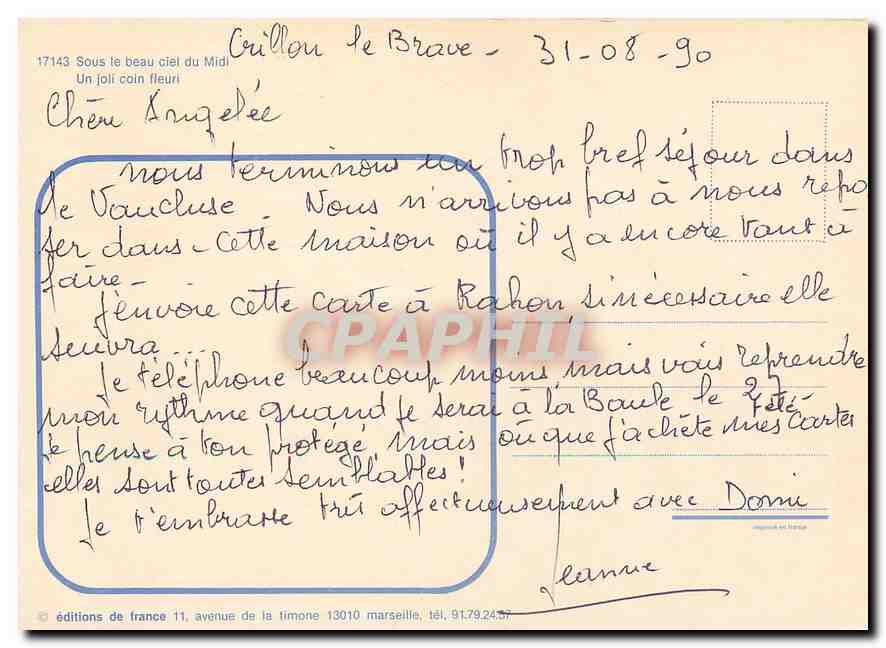 Crillon le Brave - 31-08-90
17143 Sous le beau ciel du Midi
Un joli coin fleuri
Chère Angelée
nous terminons un trop bref séjour dans
le Vaucluse. Nous n'arrivons pas à nous repo
ser dans - cette maison où il y a encore tant à
faire -
J'envoie cette carte à Rahon, si nécessaire elle
suivra...
CPAPHIL
Je téléphone beaucoup moins, mais vais reprendre
mon rythme quand je serai à la Baule le 27
je pense à ton protégé, mais où que j'achète mes cartes
elles sont toutes semblables!
Je t'embrasse très affectueusement avec Domi
imprimé en france
Jeanne
© éditions de france 11, avenue de la timone 13010 marseille, tél, 91.79.24.57